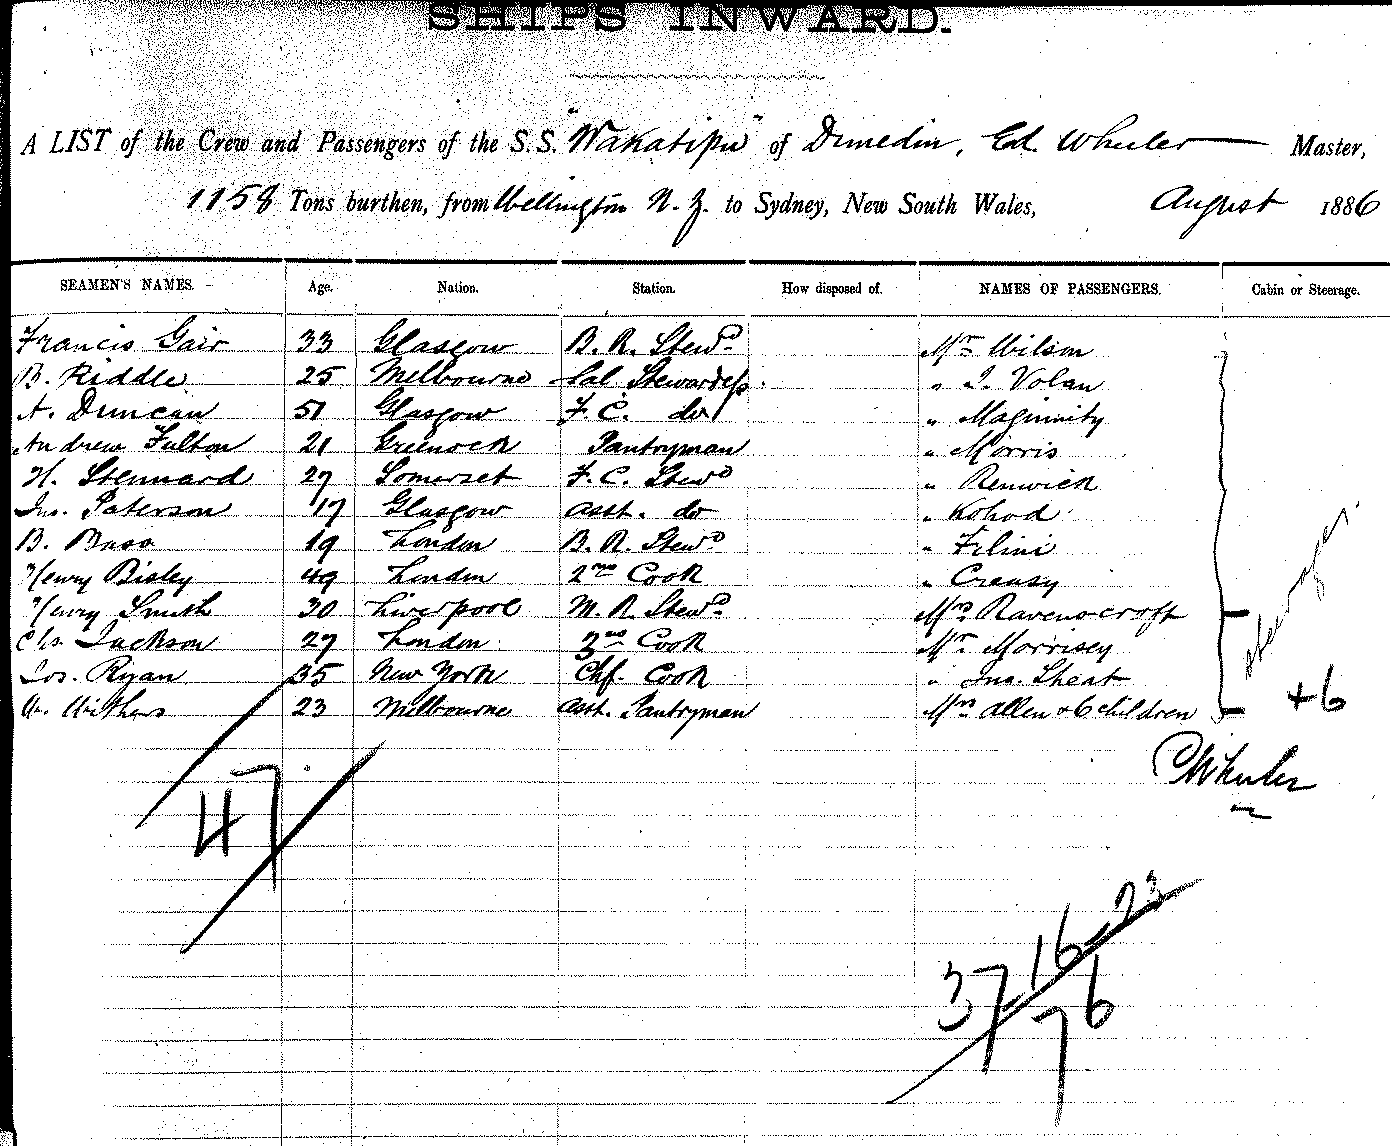 SHIPS INWARD.
A LIST of the Crew and Passengers of the S.S. "Wakatipu" of Dunedin, Ed. Wheeler Master,
1158 Tons burthen, from Wellington N. Z. to Sydney, New South Wales, August 1886
SEAMEN'S NAMES. Age. Nation. Station. How disposed of. NAMES OF PASSENGERS. Cabin or Steerage.
Francis Gair 33 Glasgow B. R. Stewd Mr Wilson
B. Riddle 25 Melbourne Sal Stewardess. " J. Volan
A. Duncan 51 Glasgow F. C. do " Maginnity
Andrew Fulton 21 Greenock Pantryman " Morris
H. Stennard 27 Somerset F. C. Stewd " Renwick
Jno. Paterson 17 Glasgow Asst. do " Kohod
B. Buso 19 London B. R. Stewd " Filini
Henry Bisley 49 London 2nd Cook " Creasy
Henry Smith 30 Liverpool M. R. Stewd Mrs Ravenscroft
Chs. Jackson 27 London 3rd Cook Mr Morrisey
Jos. Ryan 35 New York Chf. Cook " Jno. Sheat
Wm. Withers 23 Melbourne Asst. Pantryman Mrs Allen & 6 children
Steerage.
+6
47
EWheeler
37 16 23
76